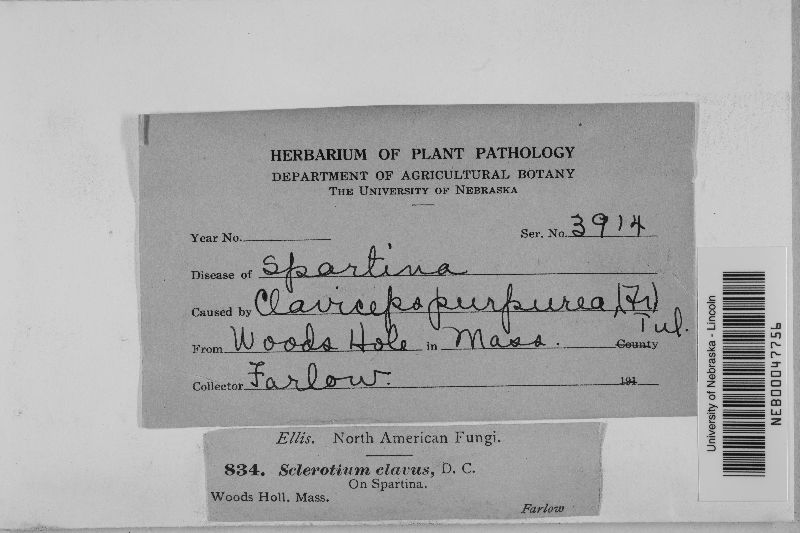 HERBARIUM OF PLANT PATHOLOGY
DEPARTMENT OF AGRICULTURAL BOTANY
THE UNIVERSITY OF NEBRASKA
Year No. Ser. No. 3914
Disease of Spartina
Caused by Claviceps purpurea, (Fr) Tul.
From Woods Hole in Mass. County
Collector Farlow. 191
Ellis. North American Fungi.
834. Sclerotium clavus, D. C.
On Spartina.
Woods Holl. Mass.
Farlow
University of Nebraska - Lincoln
NEB00047756